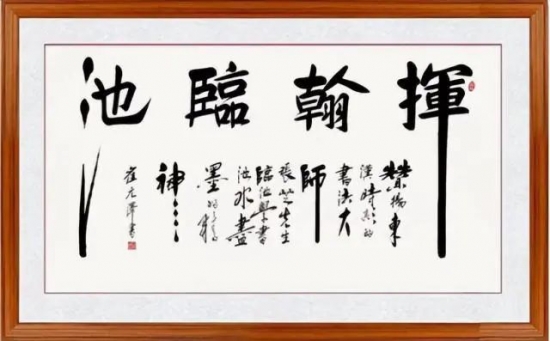 揮翰臨池
贊揚東
漢時期的
書法大
師
張芝先生
臨池學書
池水盡
墨的精
神……
崔元 書